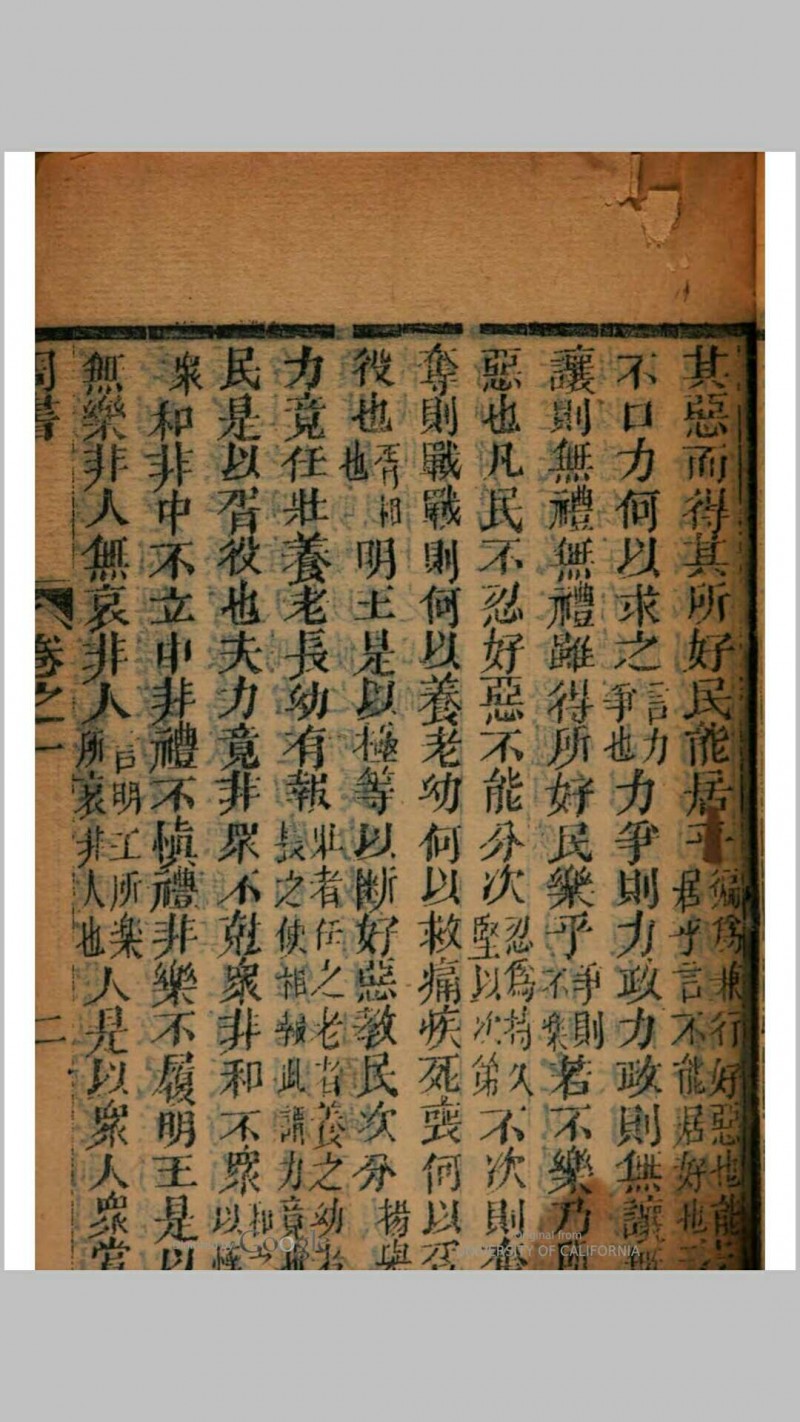 其惡而得其所好民能居乎兼行好惡也能居乎言不能居好也
不口力何以求之言力爭也力爭則力政力政則無讓無
讓則無禮無禮雖得所好民樂乎爭則不樂若不樂乃
惡也凡民不忍好惡不能分次忍爲持久堅以次第不次則奪
奪則戰戰則何以養老幼何以救痛疾死喪何以胥
役也胥相也明王是以極等以斷好惡教民次分揚與
力竟任壯養老長幼有報壯者任之老者養之幼者長之使相報此謂力竟也
民是以胥役也夫力竟非眾不尅眾非和不眾和以
眾和非中不立中非禮不愼禮非樂不履明王是以
無樂非人無哀非人言明王所樂所哀非人也人是以眾人眾賞
周書 卷之一 二
Google
Original from
UNIVERSITY OF CALIFORNIA